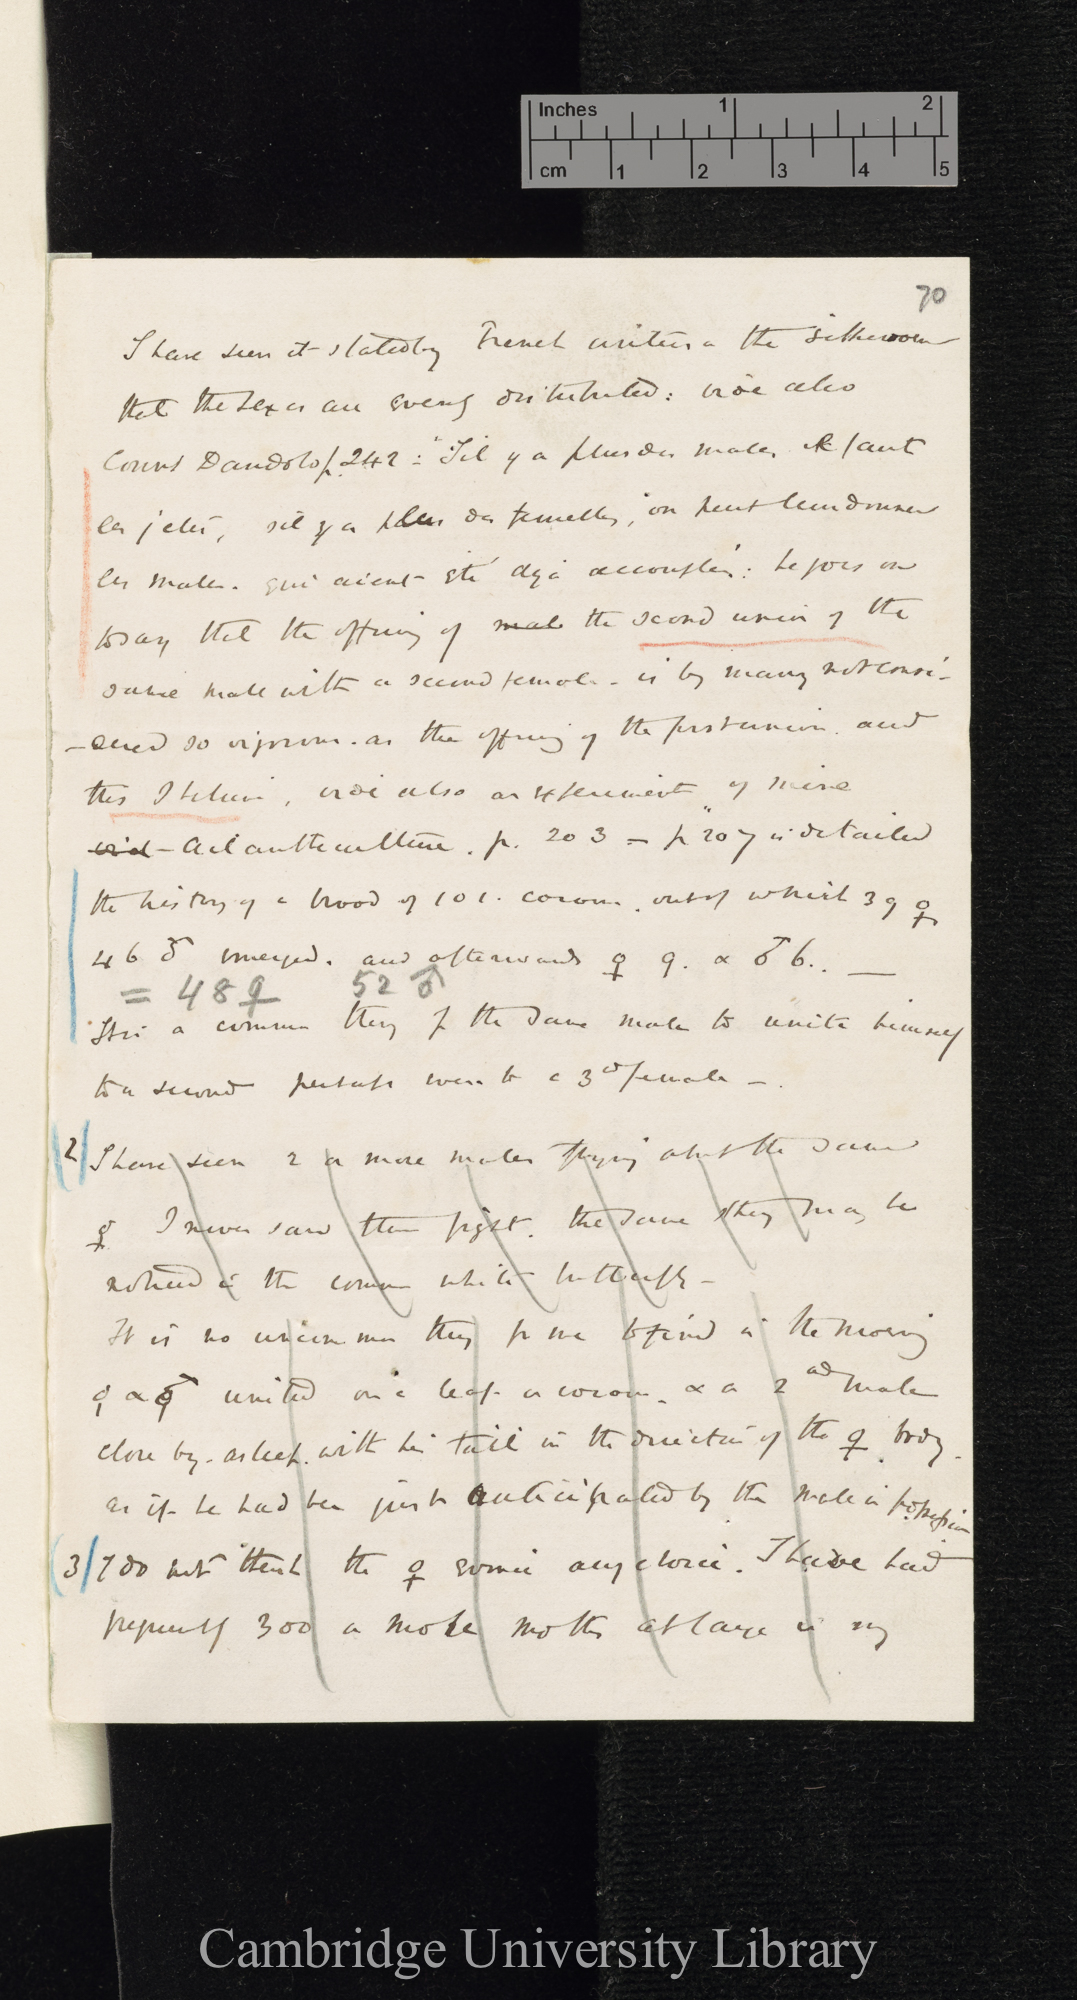 Inches 1 2
cm 1 2 3 4 5
70
I have seen it stated by French writers on the silkworm
that the sexes are evenly distributed: vide also
Count Dandolo p. 242: "S'il y a plus des males il faut
les jeter, s'il y a plus des femelles, on peut leur donner
les males. qui aient été deja accouplés: he goes on
to say that the offspring of male the second union of the
same male with a second female - is by many not consi-
-dered so vigorous. as the offspring of the first union. and
this I believe, vide also an experiment of mine
vid - Ailanthiculture. p. 203 - p "207 is detailed
the history of a brood of 101. cocoons. out of which 39 ♀
46 ♂ emerged. and afterwards ♀ 9. & ♂ 6.. —
= 48 ♀ 52 ♂
It is a common thing for the same male to unite himself
to a second perhaps even to a 3rd female -.
(2/ I have seen 2 or more males flying about the same
♀ I never saw them fight. the same thing may be
noticed in the common white butterfly -
It is no uncommon thing for me to find in the morning
♀ & ♂ united on a leaf or cocoon. & a 2nd male
close by. asleep. with his tail in the direction of the ♀ body.
as if he had been just anticipated by the male in possession
(3/ I do not think the ♀ evince any choice. I have had
frequently 300 or more moths at large in my
Cambridge University Library